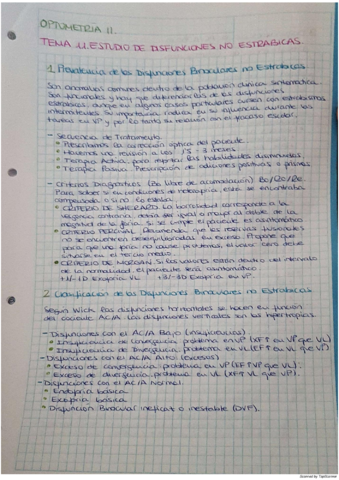 OPTOMETRIA II.
TEMA 11. ESTUDIO DE DISFUNCIONES NO ESTRABICAS.
1. Prevalencia de las Disfunciones Binoculares no Estrabicas
Son anomalías comunes dentro de la población clínica sintomática.
Son funcionales y hay que diferenciarlas de las disfunciones
estrabicas, aunque en algunos casos particulares cursen con estrabismos
intermitentes. Su importancia radica en su influencia durante los
en VP y por lo tanto su relación con el proceso escolar.
- Secuencia de Tratamiento.
• Prescribimos la corrección óptica del paciente.
• Hacemos una revisión a los 1'5 - 3 meses
• Terapia Activa para las habilidades disminuidas.
• Terapia Pasiva. Prescripción de adiciones positivas o prismas.
- Criterios Diagnósticos (
Para saber si en condiciones de heteroforia este se encontraba
compensado o no lo estaba.
• CRITERIO DE SHEARD. La borrosidad correspondiente a la
vergencia contraria, debía ser igual o mayor al doble de la
magnitud de la foria. Si se cumple el paciente es asintomático
• CRITERIO PERCIVAL. Recomienda que las reservas fusionales
no se encuentren desequilibradas en exceso. Propone que
para que una foria no cause problemas, el valor cero debe
situarse en el tercio medio.
• CRITERIO DE MORGAN. Si los valores están dentro del intervalo
de la normalidad el paciente será asintomático
+1/-1D Exoforia VL +3/-3D Exoforia en VP.
2. Clasificación de las Disfunciones Binoculares no Estrabicas
Según Wick. Las disfunciones horizontales se hacen en función
del cociente AC/A. Las disfunciones verticales son las hipertropias.
- Disfunciones con el AC/A Bajo (insuficiencias)
• Insuficiencia de Convergencia problema en VP (XF↑ en VP que VL)
• Insuficiencia de Divergencia problema en VL (EF↑ en VL que VP)
- Disfunciones con el AC/A Alto: (excesos)
• Exceso de convergencia problema en VP (EF↑ VP que VL).
• Exceso de divergencia problema en VL (XF↑ VL que VP).
- Disfunciones con el AC/A Normal.
• Endoforia básica
• Exoforia básica
• Disfunción Binocular ineficaz o inestable (DVF).
Scanned by TapScanner